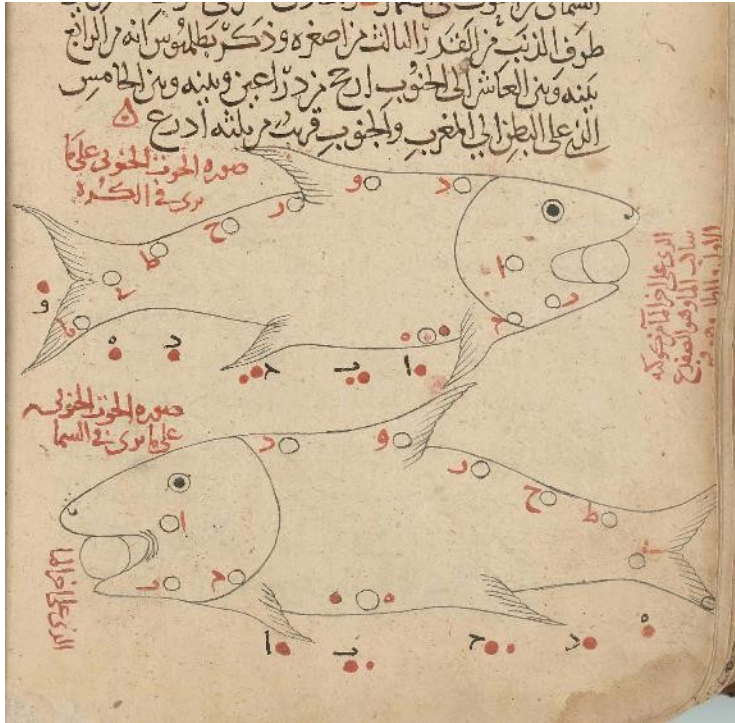 طرف الذنب من القدر الثالث من اصغره وذكر بطلميوس انه من الرابع
بينه وبين العاشر الى الجنوب ارجح من ذراعين وبينه وبين الخامس
الذي على البطن الى المغرب والجنوب قريب من ثلثه اذرع ه
صوره الحوت الجنوبى على ما
يرى فى الكره
و
د
ر
ح
ط
ا
ب
ح
و
ه
د
ح
ب
ا
الذى على اخر الما من كوكبه
ساكب الما وهو الضفدع
صوره الحوت الجنوبى
على ما يرى فى السما
د
و
ر
ح
ط
ا
ب
ح
ا
ب
ح
د
ه
الذى على اخر الما